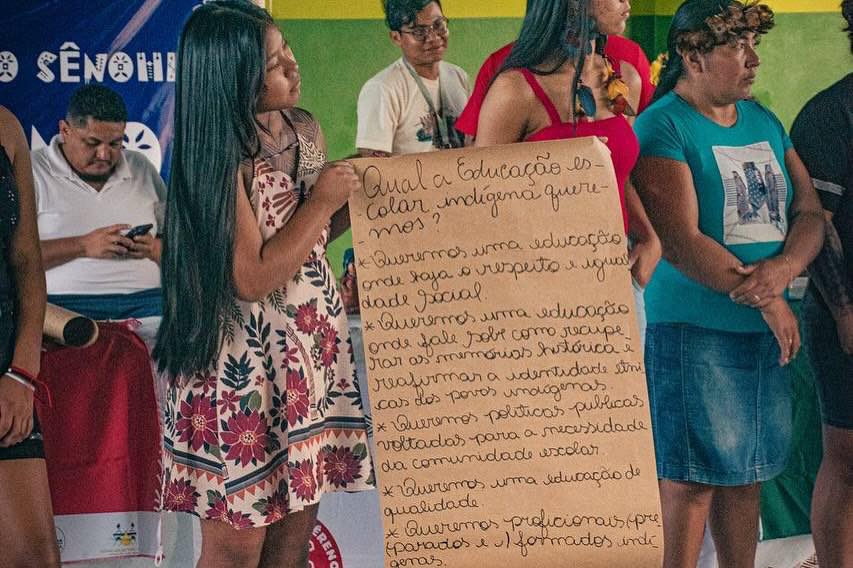 O SÊNOH
Qual a Educação es-
colar indígena quere-
mos?
* Queremos uma educação
onde haja o respeito e igual
dade social.
* Queremos uma educação
onde fale sobre como recupe-
rar as memórias histórica e
reafirmar a identidade étni
cas dos povos indígenas.
* Queremos políticas publicas
voltados para a necessidade
da comunidade escolar.
* Queremos uma educação de
qualidade
* Queremos proficionais (pre
(parados e ) formados indí-
genas.